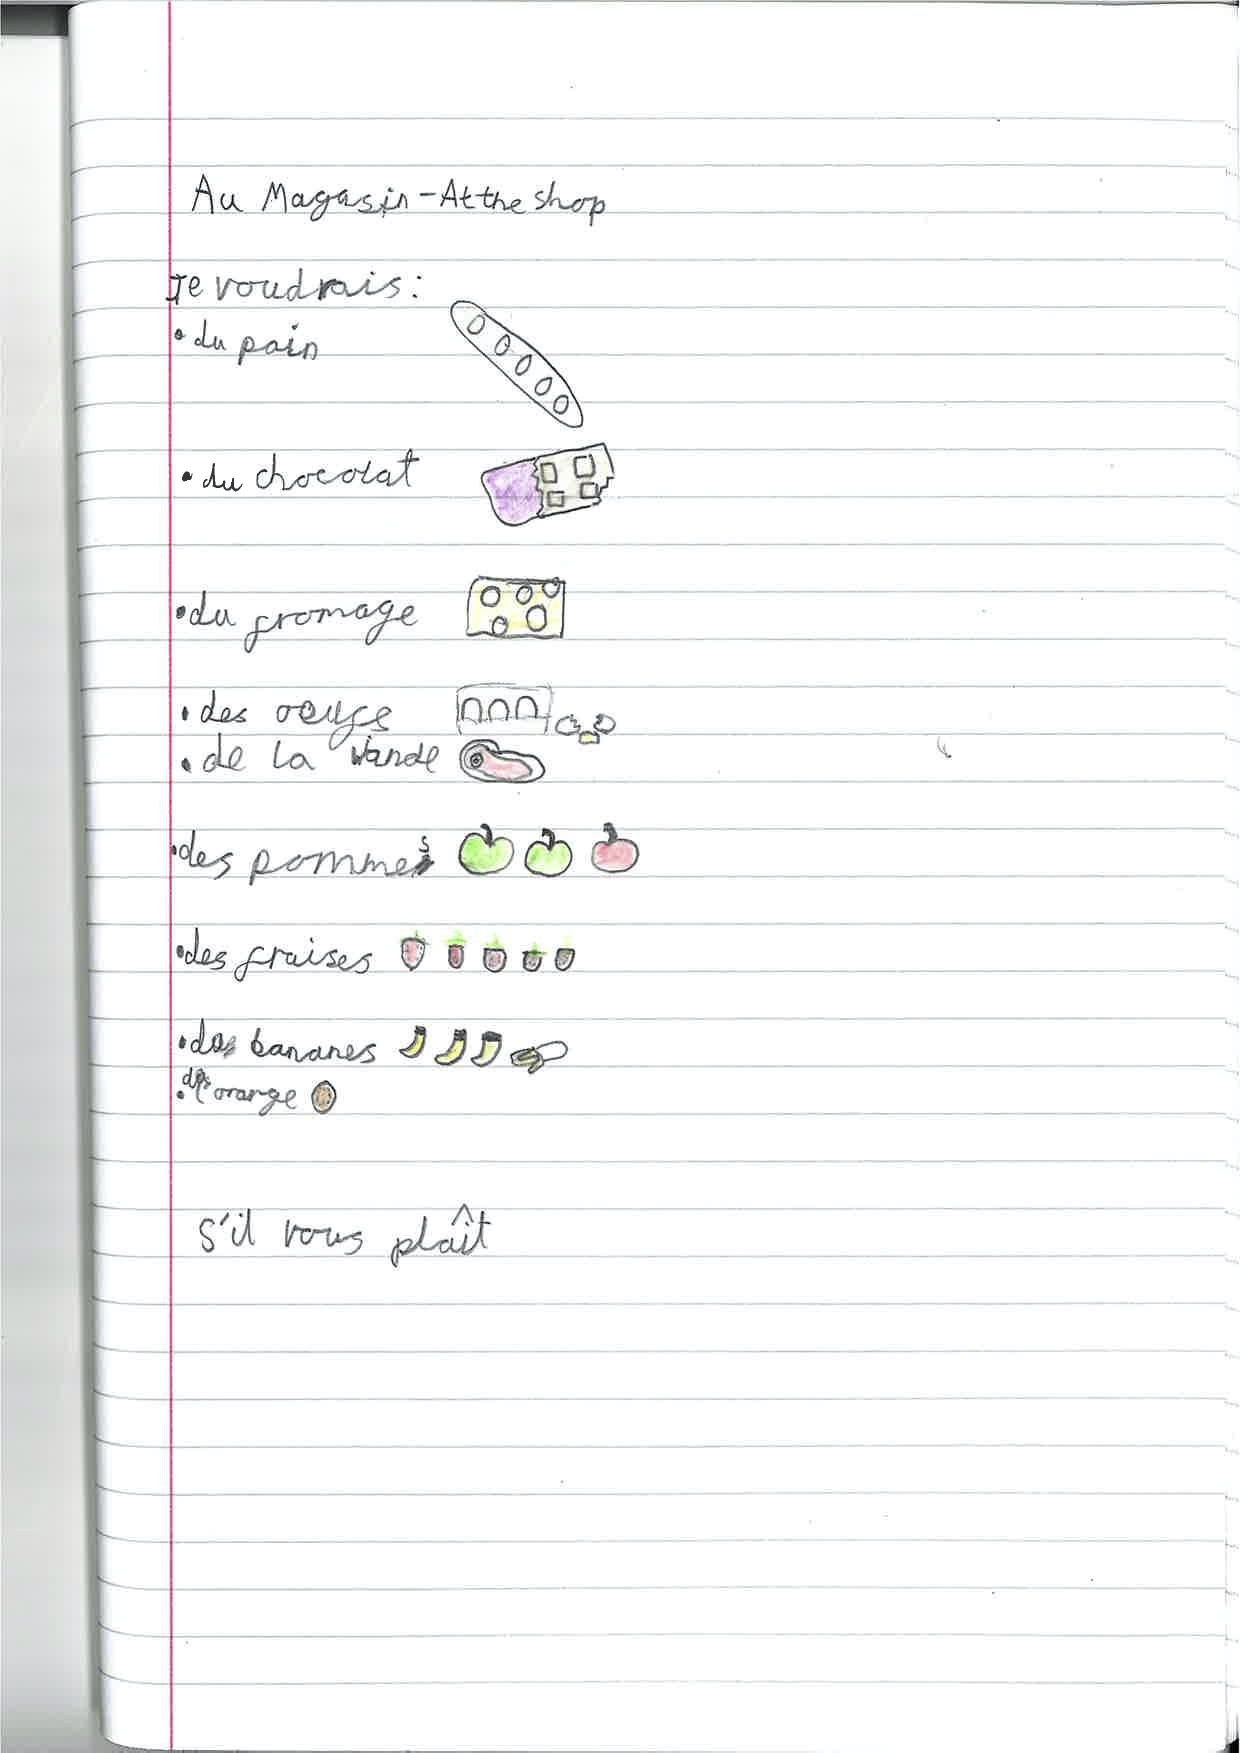 Au Magasin - At the shop
Je voudrais:
• du pain
• du chocolat
• du fromage
• des oeufs
• de la viande
• des pommes
• des fraises
• des bananes
• des orange
s'il vous plaît